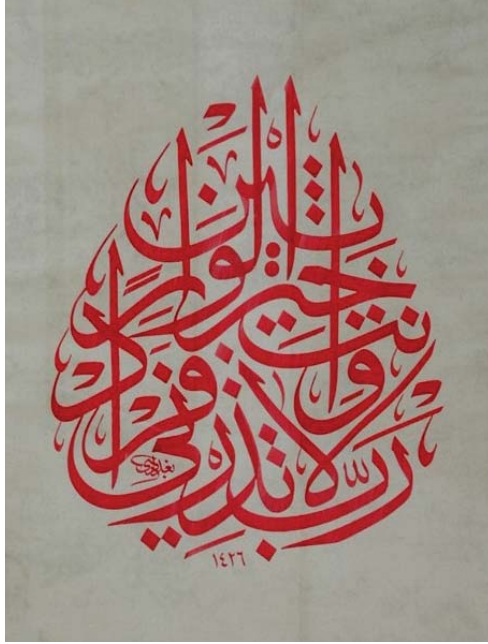 رب لا تذرني فردا وأنت خير الوارثين
١٤٢٦